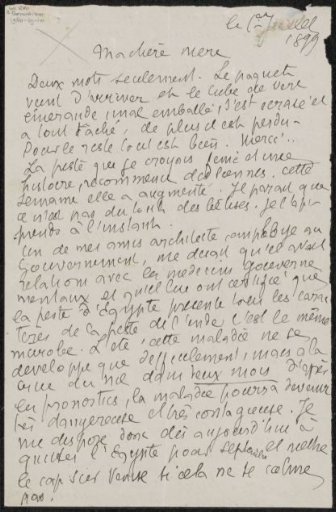 le 1er Juillet
1899
Ma chère mère
Deux mots seulement. Le paquet
vient d'arriver et le tube de vert
émeraude, mal emballé, s'est écrasé et
a tout taché, de plus il est perdu.
Pour le reste tout est bien. Merci.
La peste que je croyais finie est une
histoire, recommence de
semaine elle a augmenté. Il paraît que
ce n'est pas du tout des bêtises. Je l'ap-
prends à l'instant.
Un de mes amis architecte, employé au
Gouvernement, me disait qu'il avait
relation avec les médecins gouverne
mentaux et qu'eux ont certifié que
la peste d'Égypte présente tous les carac
tères de la peste de l'Inde c'est le même
microbe. L'été, cette maladie ne se
développe que difficilement, mais à la
crue du Nil dans deux mois d'après
les pronostics, la maladie pourra devenir
très dangereuse et très contagieuse. Je
me dispose donc dès aujourd'hui à
quitter l'Égypte pour septembre et mettre
le cap sur Venise si cela ne se calme
pas.